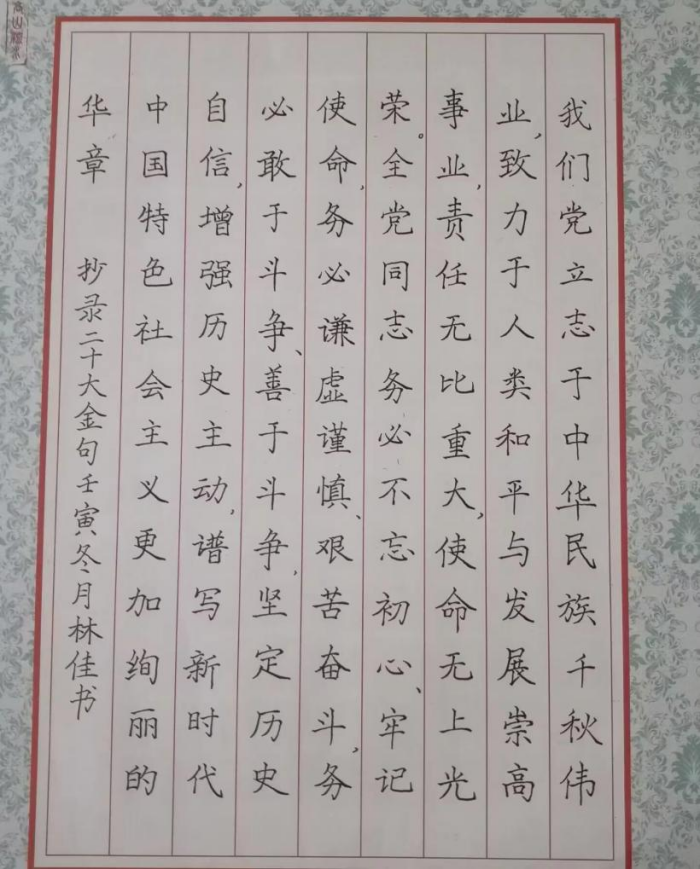 我们党立志于中华民族千秋伟
业，致力于人类和平与发展崇高
事业，责任无比重大，使命无上光
荣。全党同志务必不忘初心、牢记
使命，务必谦虚谨慎、艰苦奋斗，务
必敢于斗争、善于斗争，坚定历史
自信，增强历史主动，谱写新时代
中国特色社会主义更加绚丽的
华章 抄录二十大金句壬寅冬月林佳书